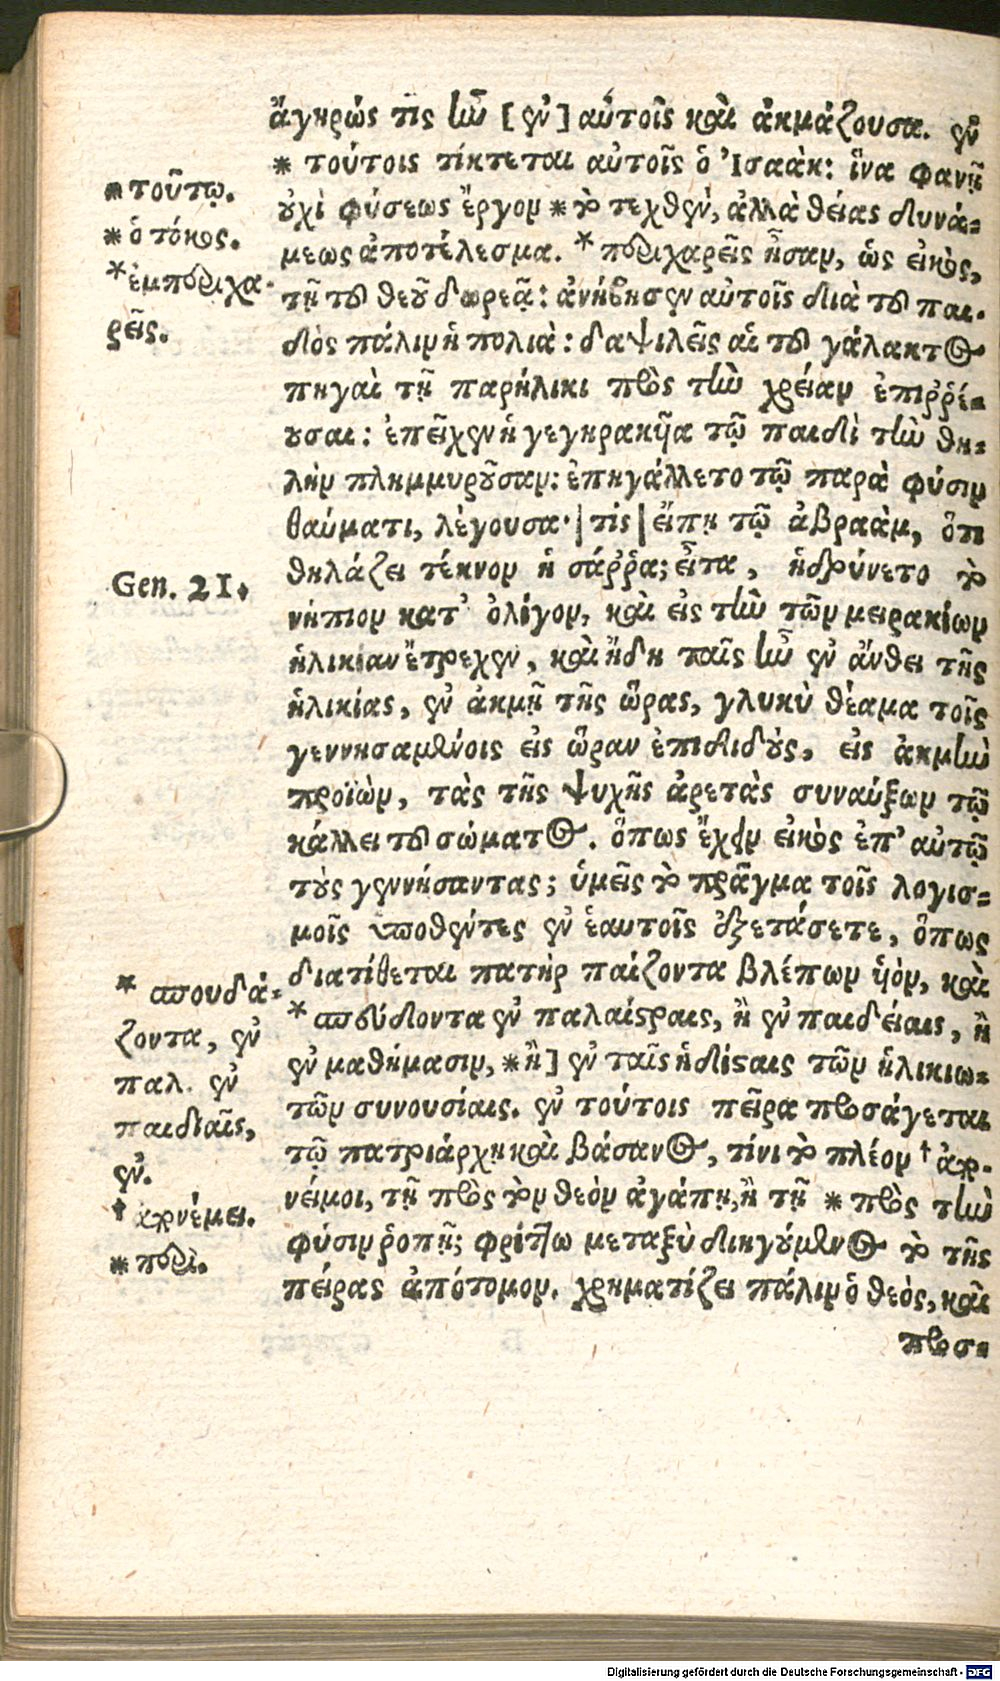 ἄγηρώς τις ἦν [ ἐν ] αὐτοῖς καὶ ἀκμάζουσα. ἐν
* τούτοις τίκτεται αὐτοῖς ὁ Ἰσαὰκ: ἵνα φανῇ
οὐχὶ φύσεως ἔργον * τὸ τεχθὲν, ἀλλὰ θείας δυνά-
μεως ἀποτέλεσμα. * περιχαρεῖς ἦσαν, ὡς εἰκὸς,
τῇ τοῦ θεοῦ δωρεᾷ: ἀνήβησεν αὐτοῖς διὰ τοῦ παι-
δὸς πάλιν ἡ πολιὰ: δαψιλεῖς αἱ τοῦ γάλακτος
πηγαὶ τῇ παρήλικι πρὸς τὴν χρείαν ἐπιῤῥέ-
ουσαι: ἐπεῖχεν ἡ γεγηρακῦα τῷ παιδὶ τὴν θη-
λὴν πλημμυροῦσαν: ἐπηγάλλετο τῷ παρὰ φύσιν
θαύματι, λέγουσα· | τίς | εἴπῃ τῷ ἀβραὰμ, ὅτι
θηλάζει τέκνον ἡ σάῤῥα; εἶτα, ἡδρύνετο τὸ
νήπιον κατ' ὀλίγον, καὶ εἰς τὴν τῶν μειρακίων
ἡλικίαν ἔτρεχεν, καὶ ἤδη παῖς ἦν ἐν ἄνθει τῆς
ἡλικίας, ἐν ἀκμῇ τῆς ὥρας, γλυκὺ θέαμα τοῖς
γεννησαμένοις εἰς ὥραν ἐπιδιδοὺς, εἰς ἀκμὴν
προϊὼν, τὰς τῆς ψυχῆς ἀρετὰς συναύξων τῷ
κάλλει τοῦ σώματος. ὅπως ἔχειν εἰκὸς ἐπ' αὐτῷ
τοὺς γεννήσαντας; ὑμεῖς τὸ πρᾶγμα τοῖς λογισ-
μοῖς ὑποθέντες ἐν ἑαυτοῖς ἐξετάσετε, ὅπως
διατίθεται πατὴρ παίζοντα βλέπων ὑὸν, καὶ
* σπεύδοντα ἐν παλαίστραις, ἢ ἐν παιδείαις, ἢ
ἐν μαθήμασιν, * ἢ ] ἐν ταῖς ἡδίσταις τῶν ἡλικιω-
τῶν συνουσίαις. ἐν τούτοις πεῖρα προσάγεται
τῷ πατριάρχῃ καὶ βάσανος, τίνι τὸ πλέον † ἀπο-
νέιμοι, τῇ πρὸς τὸν θεὸν ἀγάπῃ, ἢ τῇ * πρὸς τὴν
φύσιν ῥοπῇ; φρίττω μεταξὺ διηγούμενος τὸ τῆς
πείρας ἀπότομον. χρηματίζει πάλιν ὁ θεὸς, καὶ
προσ-
* τούτῳ.
* ὁ τόκος.
* ἐμπεριχα-
ρεῖς.
Gen. 21.
* σπουδά-
ζοντα, ἐν
παλ. ἐν
παιδιαῖς,
ἐν.
† ἀπονέμει.
* περὶ.
Digitalisierung gefördert durch die Deutsche Forschungsgemeinschaft - DFG